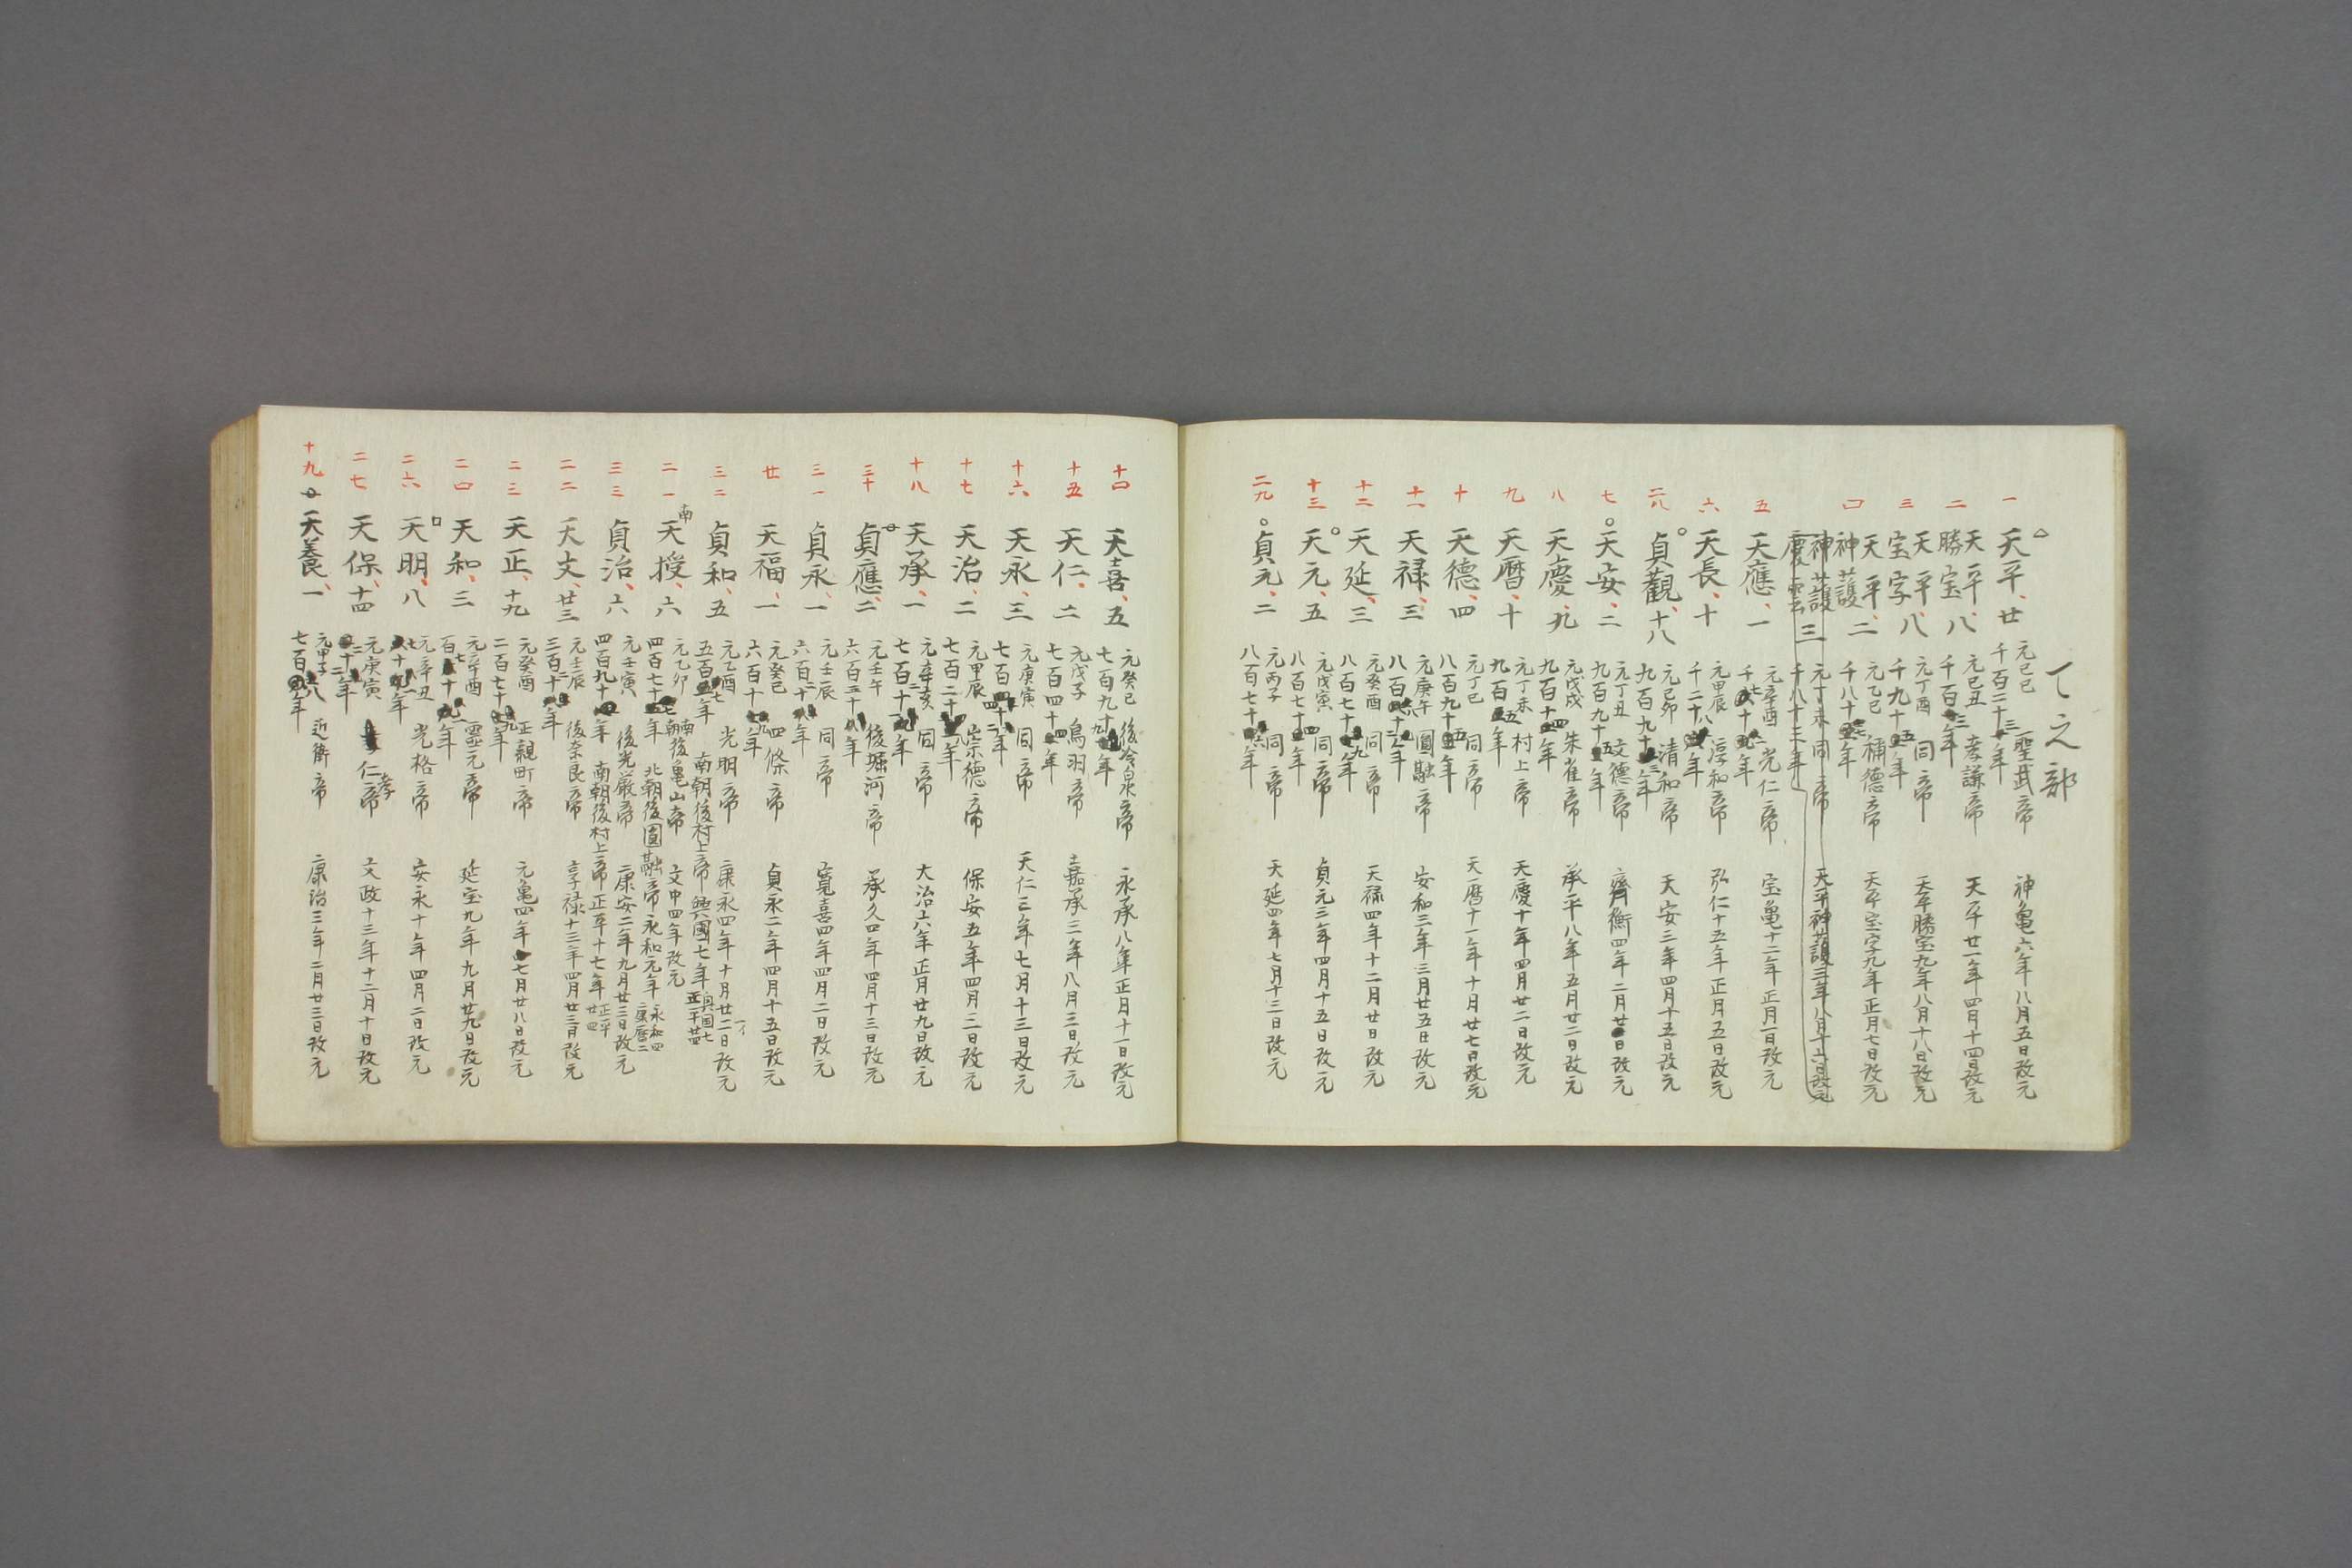 て之部
一 天平、廿 元己巳 聖武帝 神亀六年八月五日改元
千百二十三年
二 天平勝宝、八 元己丑 孝謙帝 天平廿一年四月十四日改元
千百三年
三 天平宝字、八 元丁酉 同帝 天平勝宝九年八月十八日改元
千九十五年
四 天平神護、二 元乙巳 称德帝 天平宝字九年正月七日改元
千八十七年
神護慶雲三 元丁未 同帝 天平神護三年八月十六日改元
千八十三年
五 天應、一 元辛酉 光仁帝 宝亀十二年正月一日改元
千七十一年
六 天長、十 元甲辰 淳和帝 弘仁十五年正月五日改元
千二十八年
二八 貞觀、十八 元己卯 清和帝 天安三年四月十五日改元
九百九十三年
七 天安、二 元丁丑 文德帝 齊衡四年二月廿日改元
九百九十五年
八 天慶、九 元戊戌 朱雀帝 承平八年五月廿二日改元
九百十四年
九 天暦、十 元丁未 村上帝 天慶十年四月廿二日改元
九百五年
十 天德、四 元丁巳 同帝 天暦十一年十月廿七日改元
八百九十五年
十一 天禄、三 元庚午 圓融帝 安和三年三月廿五日改元
八百年
十二 天延、三 元癸酉 同帝 天禄四年十二月廿日改元
八百七十九年
十三 天元、五 元戊寅 同帝 貞元三年四月十五日改元
八百七十四年
二九 貞元、二 元丙子 同帝 天延四年七月十三日改元
八百七十六年
十四 天喜、五 元癸巳 後冷泉帝 永承八年正月十一日改元
七百九十九年
十五 天仁、二 元戊子 鳥羽帝 嘉承三年八月三日改元
七百四十四年
十六 天永、三 元庚寅 同帝 天仁三年七月十三日改元
七百四十二年
十七 天治、二 元甲辰 崇德帝 保安五年四月三日改元
七百二十年
十八 天承、一 元辛亥 同帝 大治六年正月廿九日改元
七百十一年
三十 貞應、二 元壬午 後堀河帝 承久四年四月十三日改元
六百三十年
三一 貞永、一 元壬辰 同帝 寛喜四年四月二日改元
六百二十年
廿 天福、一 元癸巳 四條帝 貞永二年四月十五日改元
六百十九年
三二 貞和、五 元乙酉 光明帝 康永四年十月廿二日改元
五百七年 南朝後村上帝 興國七年 興国七 正平廿四
二一 南 天授、六 元乙卯 南朝後亀山帝 文中四年改元
四百七十七年 北朝後圓融帝 永和元年 永和四 康暦二
三三 貞治、六 元壬寅 後光厳帝 康安二年九月廿三日改元
四百九十年 南朝後村上帝 正平十七年 正平廿四
二二 天文、廿三 元壬辰 後奈良帝 享禄十三年四月廿三日改元
三百二十年
二三 天正、十九 元癸酉 正親町帝 元亀四年七月廿八日改元
二百七十九年
二四 天和、三 元辛酉 霊元帝 延宝九年九月廿九日改元
百七十一年
二六 天明、八 元辛丑 光格帝 安永十年四月二日改元
七十一年
二七 天保、十四 元庚寅 仁孝帝 文政十三年十二月十日改元
二十二年
十九 天養、一 元甲子 近衛帝 康治三年二月廿三日改元
七百八年